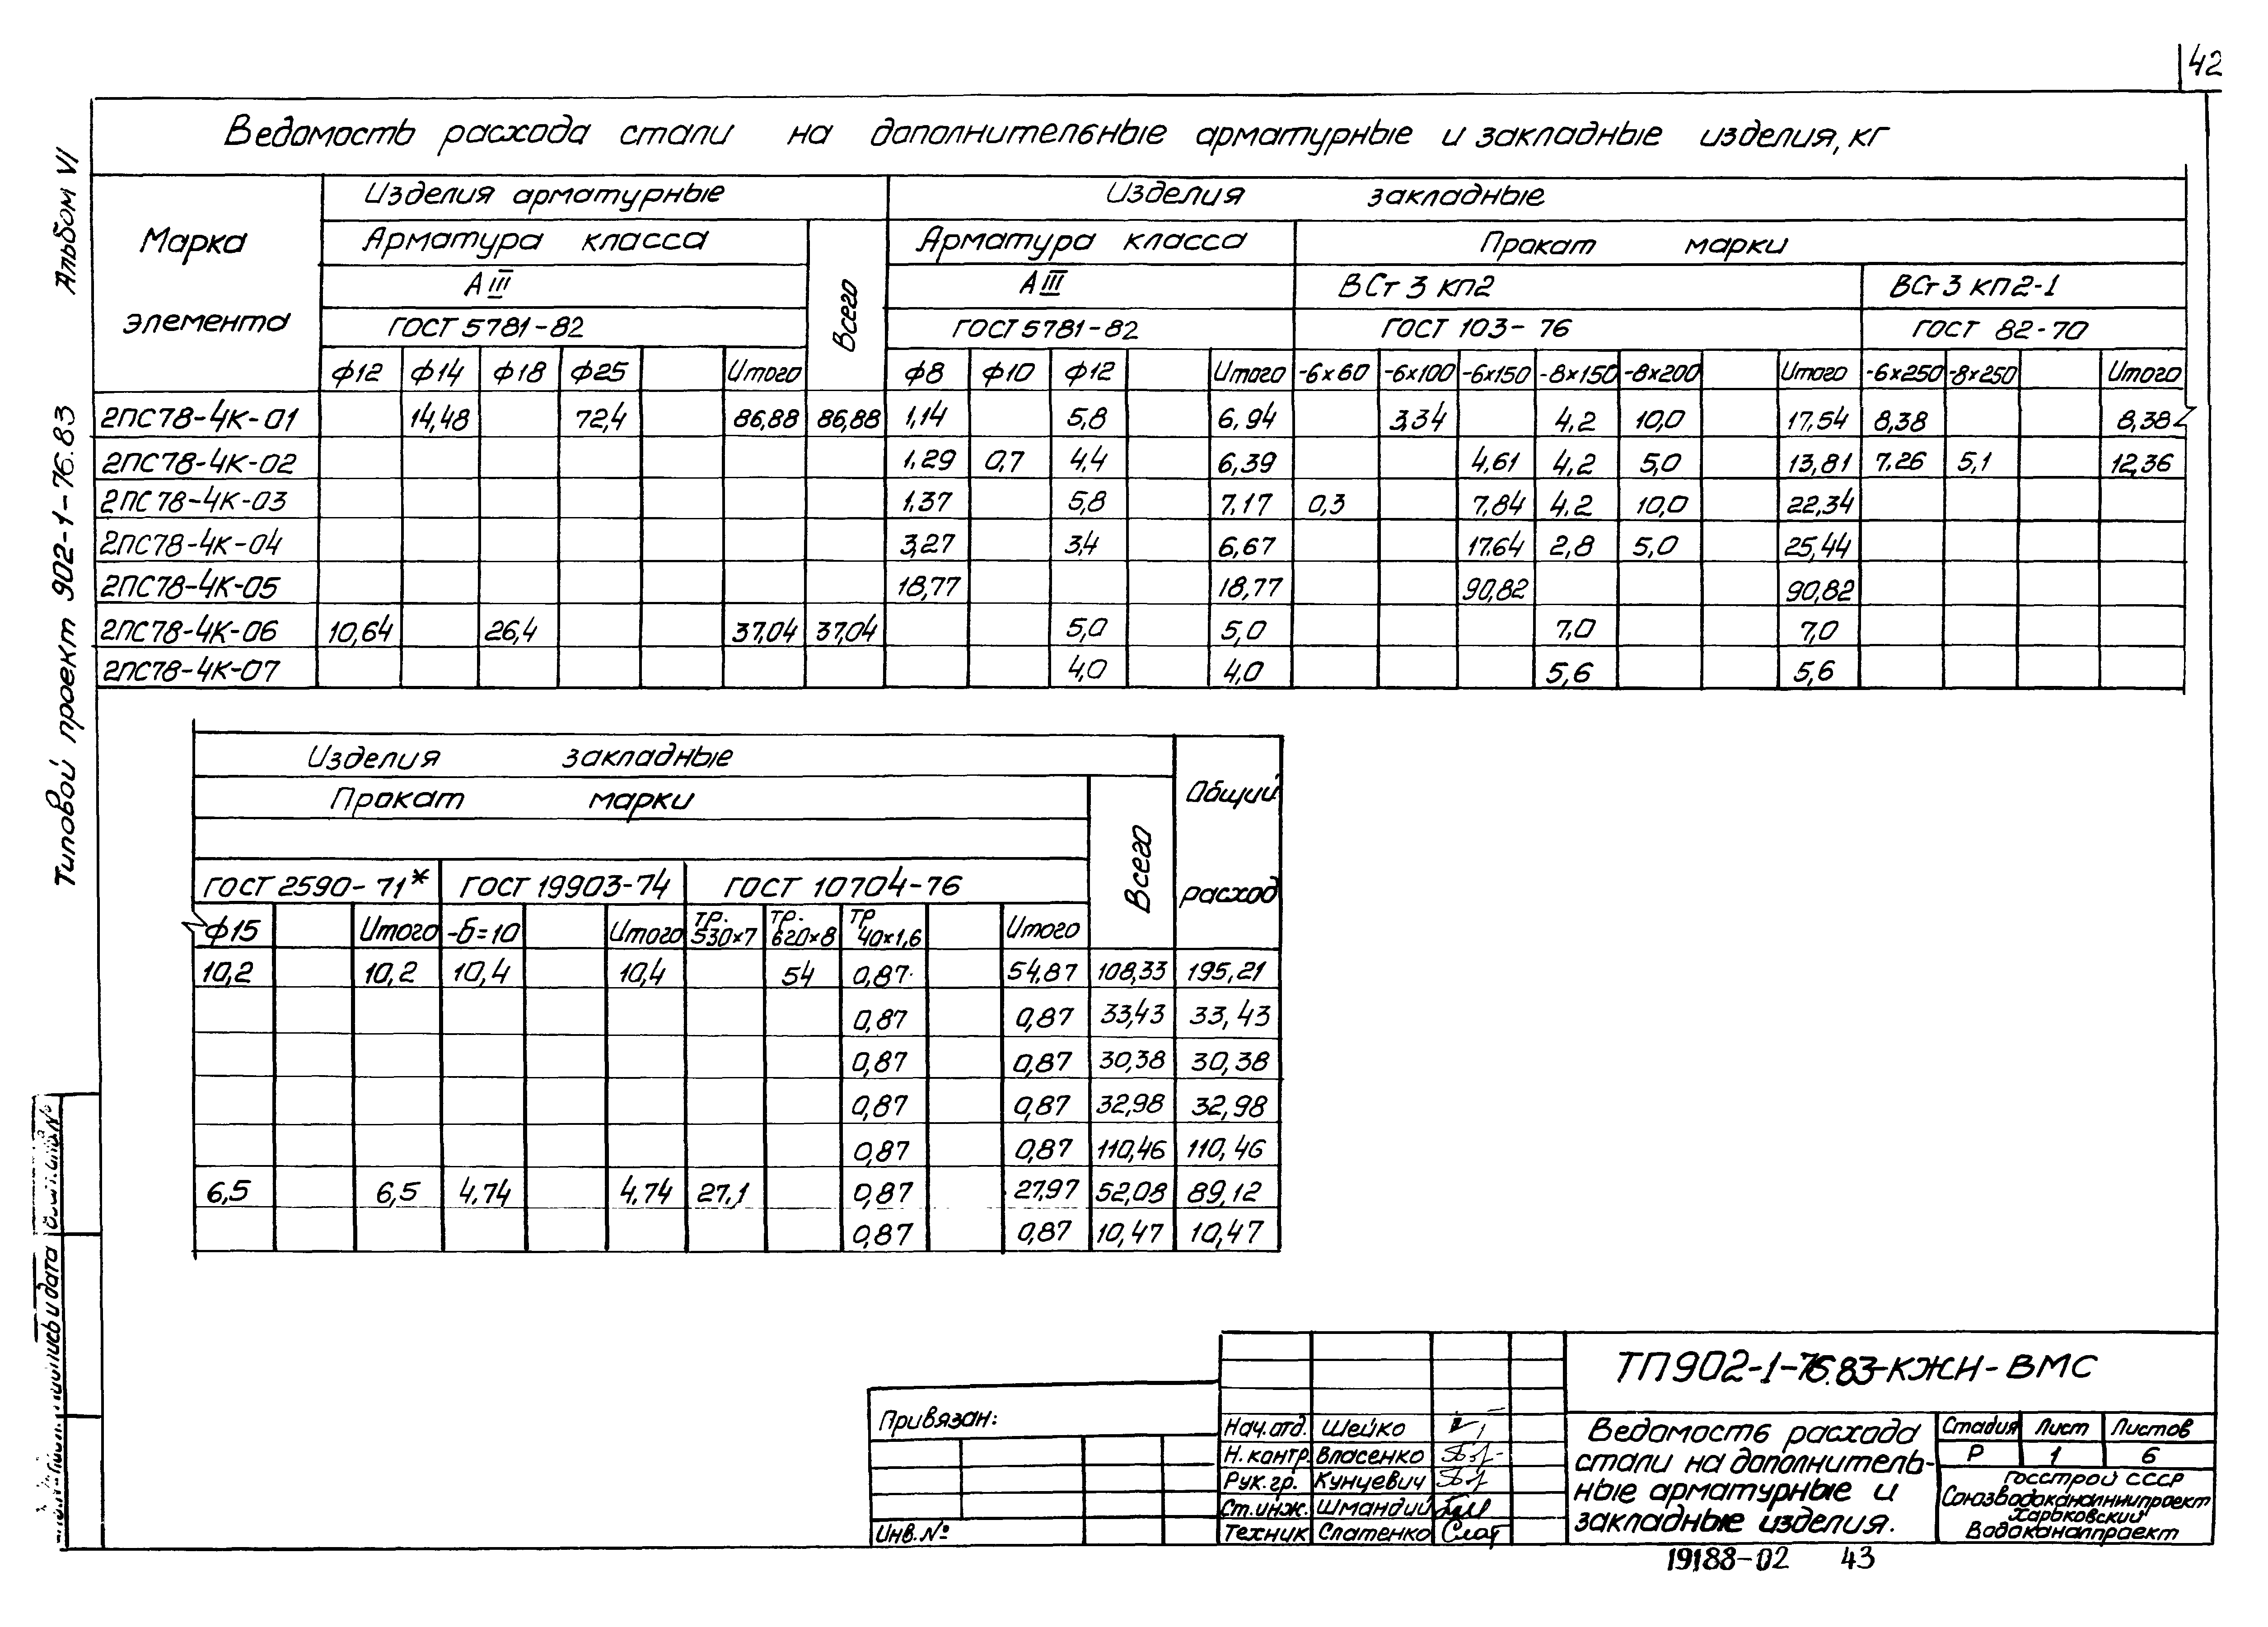 42
Ведомость расхода стали на дополнительные арматурные и закладные изделия, кг
Альбом VI
Типовой проект 902-1-76.83
Марка элемента
Изделия арматурные
Изделия закладные
Арматура класса
Всего
Арматура класса
Прокат марки
АIII
АIII
ВСт 3 кп2
ВСт 3 кп2-1
ГОСТ 5781-82
ГОСТ 5781-82
ГОСТ 103-76
ГОСТ 82-70
ф12 ф14 ф18 ф25 Итого ф8 ф10 ф12 Итого -6×60 -6×100 -6×150 -8×150 -8×200 Итого -6×250 -8×250 Итого
2ПС78-4К-01 14,48 72,4 86,88 86,88 1,14 5,8 6,94 3,34 4,2 10,0 17,54 8,38 8,38
2ПС78-4К-02 1,29 0,7 4,4 6,39 4,61 4,2 5,0 13,81 7,26 5,1 12,36
2ПС78-4К-03 1,37 5,8 7,17 0,3 7,84 4,2 10,0 22,34
2ПС78-4К-04 3,27 3,4 6,67 17,64 2,8 5,0 25,44
2ПС78-4К-05 18,77 18,77 90,82 90,82
2ПС78-4К-06 10,64 26,4 37,04 37,04 5,0 5,0 7,0 7,0
2ПС78-4К-07 4,0 4,0 5,6 5,6
Изделия закладные
Общий расход
Прокат марки
Всего
ГОСТ 2590-71* ГОСТ 19903-74 ГОСТ 10704-76
ф15 Итого -б=10 Итого тр. 530×7 тр. 620×8 тр 40×1,6 Итого
10,2 10,2 10,4 10,4 54 0,87 54,87 108,33 195,21
0,87 0,87 33,43 33,43
0,87 0,87 30,38 30,38
0,87 0,87 32,98 32,98
0,87 0,87 110,46 110,46
6,5 6,5 4,74 4,74 27,1 0,87 27,97 52,08 89,12
0,87 0,87 10,47 10,47
Привязан:
Инв. №
Нач.отд. Шейко
Н.контр. Власенко
Рук.гр. Кунцевич
Ст.инж. Шмандий
Техник Слатенко
ТП902-1-76.83-КЖИ-ВМС
Ведомость расхода
стали на дополнитель-
ные арматурные и
закладные изделия.
Стадия Лист Листов
Р 1 6
Госстрой СССР
Союзводоканалниипроект
Харьковский
Водоканалпроект
19188-02 43